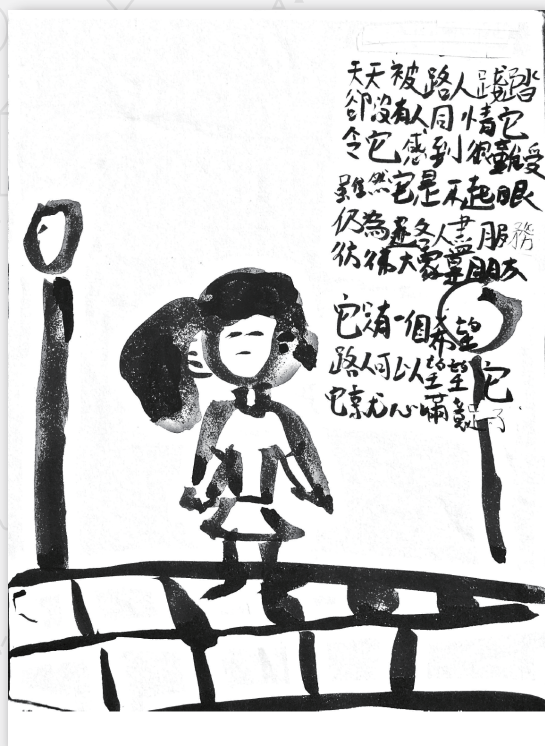 天天被路人踐踏
卻沒有人同情它
令它感到很難受
雖然它是不起眼
仍為路人盡服務
彷彿大家是朋友
它沒有一個希望
路人可以望望它
它就心滿意足了